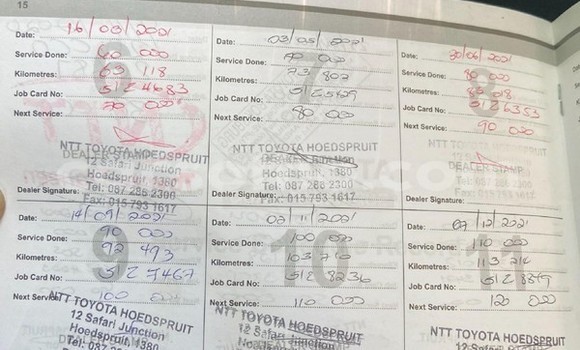 15
Date: 16/03/2021
Service Done: 60 000
Kilometres: 63 118
Job Card No: 5124683
Next Service: 70 000
NTT TOYOTA HOEDSPRUIT
DEALER STAMP
12 Safari Junction
Hoedspruit, 1380
Tel: 087 286 2300
Dealer Signature:
Fax: 015 793 1617
Date: 03/05/2021
Service Done: 70 000
Kilometres: 73 802
Job Card No:
Next Service: 80 000
NTT TOYOTA HOEDSPRUIT
Hoedspruit, 1380
Tel: 087 286 2300
Dealer Signature:
Fax: 015 793 1617
Date: 30/06/2021
Service Done: 80 000
Kilometres: 83 018
Job Card No: 5126353
Next Service: 90 000
NTT TOYOTA HOEDSPRUIT
DEALER STAMP
Hoedspruit, 1380
Tel: 087 286 2300
Dealer Signature:
Fax: 015 793 1617
9
Date: 14/09/2021
Service Done: 90 000
Kilometres: 92 493
Job Card No: 5127467
Next Service: 100 000
NTT TOYOTA HOEDSPRUIT
12 Safari Junction
Hoedspruit, 1380
10
Date: 02/11/2021
Service Done: 100 000
Kilometres: 103 710
Job Card No: 5128236
Next Service: 110 000
NTT TOYOTA HOEDSPRUIT
12 Safari Junction
Hoedspruit, 1380
Date: 07/12/2021
Service Done: 110 000
Kilometres: 113 214
Job Card No: 5128849
Next Service: 120 000
NTT TOYOTA HOEDSPRUIT
12 Safari Junction